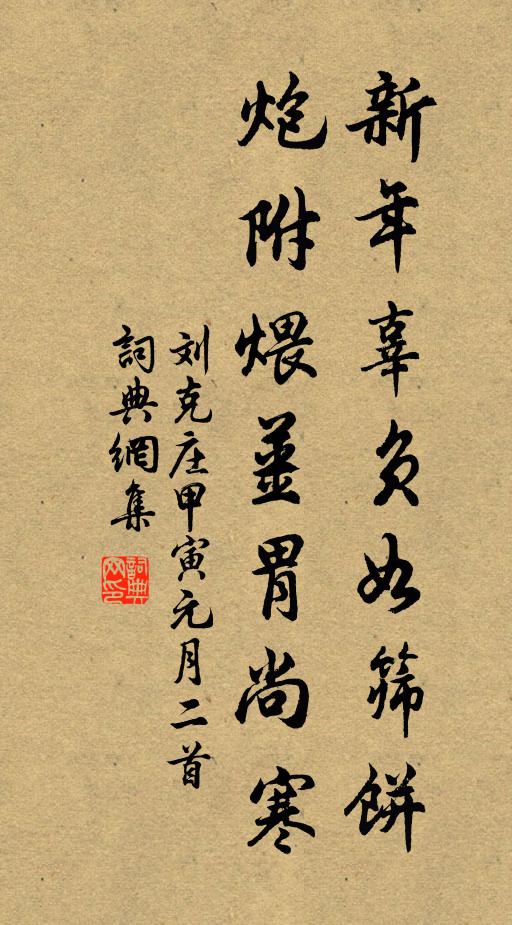 新年辜负如筛餅
炮附煨薑胃尚寒
刘克庄甲寅元月二首
詞典網集
詞典網印